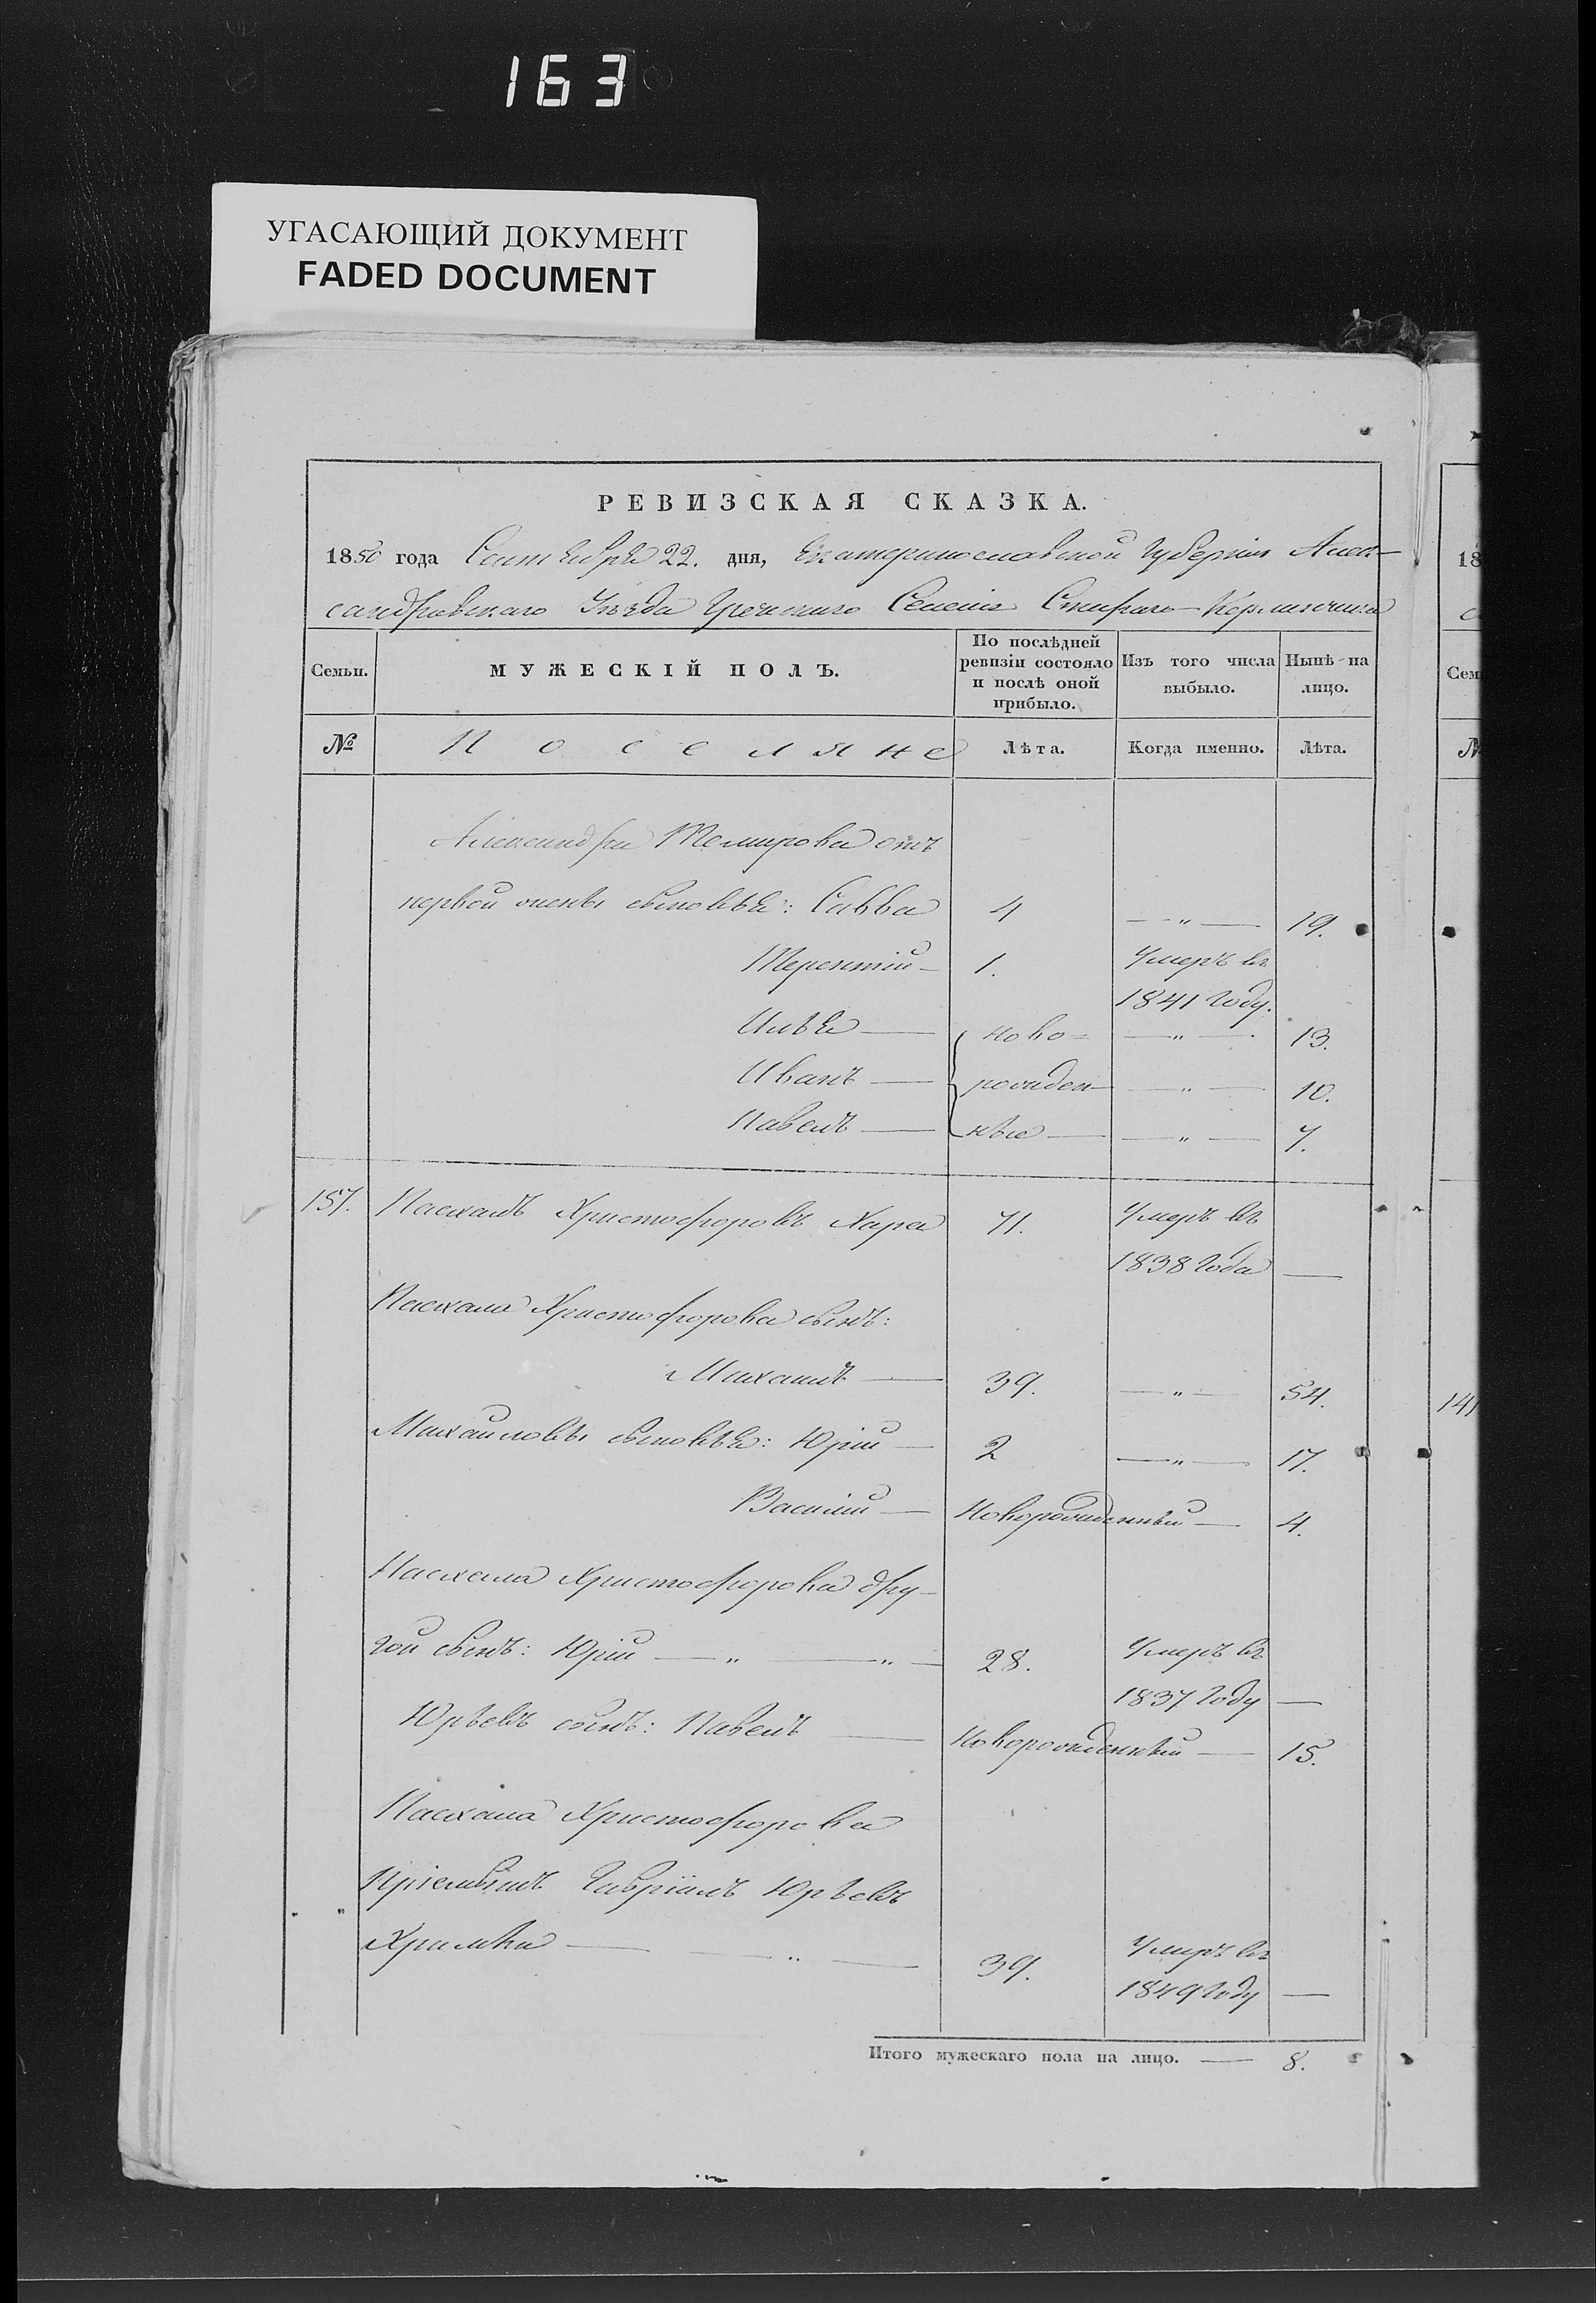 163
УГАСАЮЩИЙ ДОКУМЕНТ
FADED DOCUMENT
РЕВИЗСКАЯ СКАЗКА.
1850 года Сентября 22. дня, Екатеринославской Губернии Алек-
сандровскаго Уѣзда Греческаго Селенія Стараго-Керменчика
Семьи.
МУЖЕСКІЙ ПОЛЪ.
По послѣдней ревизіи состояло и послѣ оной прибыло.
Изъ того числа выбыло.
Нынѣ на лицо.
№ Поселяне Лѣта. Когда именно. Лѣта.
Александра Темирова отъ
первой жены сыновья: Савва 4 — „ — 19.
Терентій — 1. Умеръ въ
1841 году.
Илья — ново= — „ — 13.
Иванъ — рожден- — „ — 10.
Павелъ — ные — — „ — 7.
157. Пасхалъ Христофоровъ Хара 71. Умеръ въ
1838 года —
Пасхала Христофорова сынъ:
Михаилъ — 39. — „ — 54.
Михаиловы сыновья: Юрій — 2 — „ — 17.
Василій — Новорожденный — 4.
Пасхала Христофорова дру-
гой сынъ: Юрій — „ — „ — 28. Умеръ въ
1837 году —
Юрьевъ сынъ: Павелъ — Новорожденный — 15.
Пасхала Христофорова
Пріемышъ Гавріилъ Юрьевъ
— „ — 39. Умеръ въ
1849 году —
Итого мужескаго пола на лицо. — 8.
18
Сем
№
141